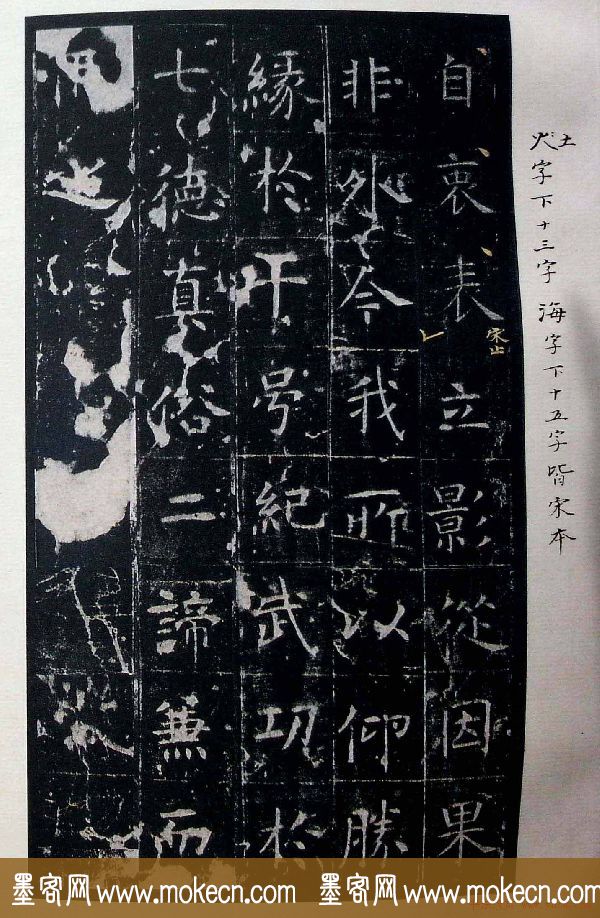 土
火字下十三字 海字下十五字皆宋本
自衷表立影從因果
宋止
非外今我所以仰勝
緣於千号紀武功於
七德真俗二諦兼而
墨客网 www.mokecn.com 墨客网 www.mokecn.com